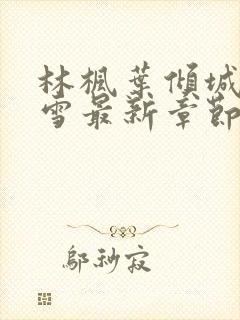 林楓葉傾城
雪最新章節
鄔秒寂